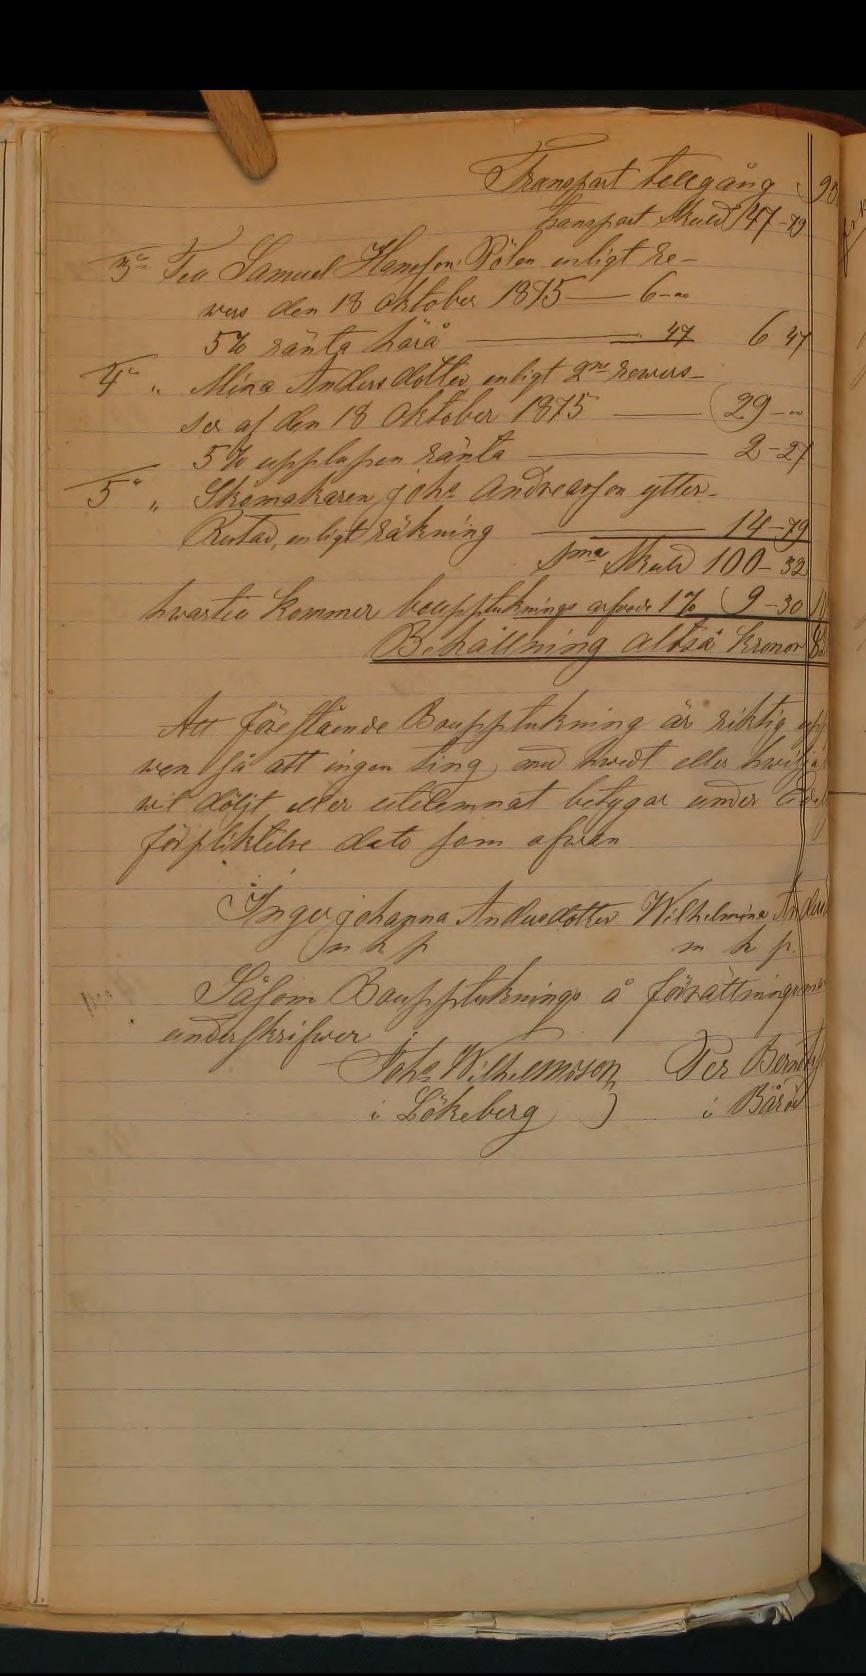 Transport tillgång 93
Transport Skuld 47-79
3o Till Samuel Hansson Rölen enligt re-
wers den 18 Oktober 1875 — 6-"
5% ränta härå — 47 6 47
4o " Mina Andersdotter enligt 2ne rewers-
ser af den 18 Oktober 1875 — 29-"
5% upplupen ränta — 2-27
5o " Skomakaren Johs Andreasson ytter-
Restad, enligt räkning — 14-79
Sma Skuld 100-32
hwartill kommer bouppteknings arfvode 1% 9-30
Behållning altså Kronor 8
Att föreflående Bouppteknning är riktig upp
wen så att ingen ting med hwedt eller hwilja
wil döljt eller utelemnat betygar under
förpliktelse dato som ofwan
Inger johanna Andersdotter Wilhelmina Anders
m h p m h p.
Såsom Boupptuknings å förrättningsm
underskrifwer
Johs Wilhelmsson Per Bernt
i Lökeberg ) i Båröd